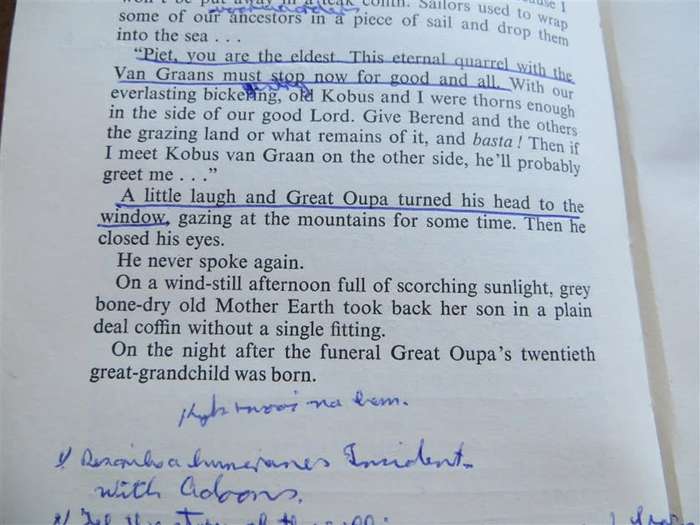 some of our ancestors in a piece of sail and drop them
into the sea . . .
“Piet, you are the eldest. This eternal quarrel with the
Van Graans must stop now for good and all. With our
everlasting bickering, old Kobus and I were thorns enough
in the side of our good Lord. Give Berend and the others
the grazing land or what remains of it, and basta! Then if
I meet Kobus van Graan on the other side, he’ll probably
greet me . . .”
A little laugh and Great Oupa turned his head to the
window, gazing at the mountains for some time. Then he
closed his eyes.
He never spoke again.
On a wind-still afternoon full of scorching sunlight, grey
bone-dry old Mother Earth took back her son in a plain
deal coffin without a single fitting.
On the night after the funeral Great Oupa’s twentieth
great-grandchild was born.
mooi na hom.
Incident
with Adoons.